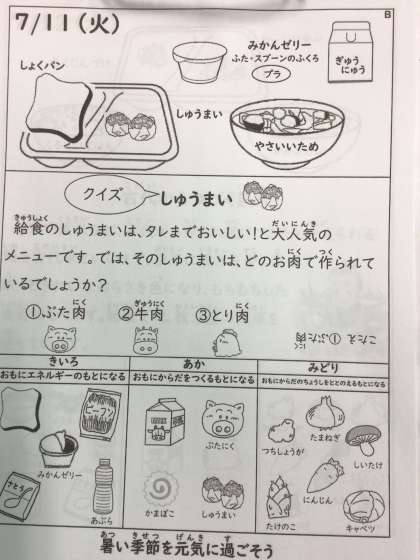 7/11(火)
B
みかんゼリー
ふた・スプーンのふくろ
プラ
ぎゅう
にゅう
しょくパン
しゅうまい
やさいいため
クイズ
しゅうまい
給食のしゅうまいは、タレまでおいしい!と大人気の
メニューです。では、そのしゅうまいは、どのお肉で作られて
いるでしょうか?
①ぶた肉 ②牛肉 ③とり肉
こたえ ①ぶた肉
きいろ
おもにエネルギーのもとになる
あか
おもにからだをつくるもとになる
みどり
おもにからだのちょうしをととのえるもとになる
ビーフン
みかんゼリー
さとう
あぶら
ぶたにく
かまぼこ
しゅうまい
たまねぎ
つちしょうが
しいたけ
にんじん
たけのこ
キャベツ
暑い季節を元気に過ごそう